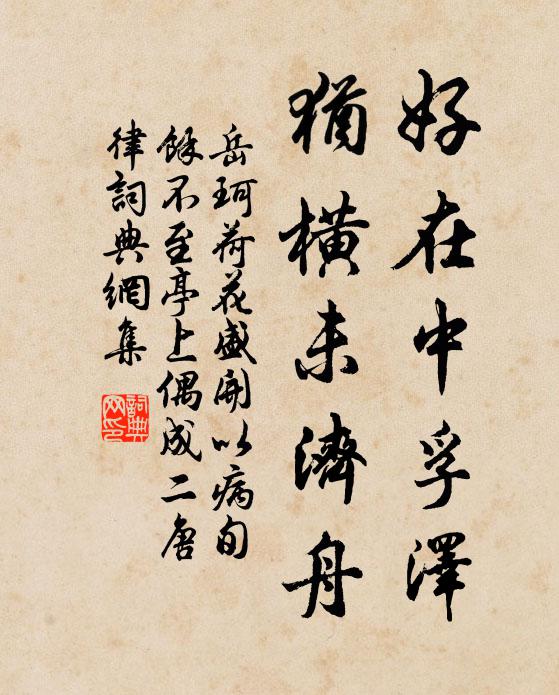 好在中孚澤
猶橫未濟舟
岳珂荷花盛開以病旬
餘不至亭上偶成二唐
律詞典網集
詞典
网印